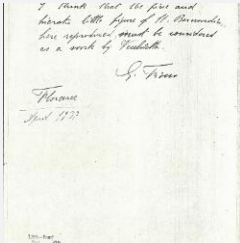 I think that the fine and
hieratic little figure of St. Bernardin,
here reproduced must be considered
as a work by Vecchietta.
G. Fiocco
Florence
April 19